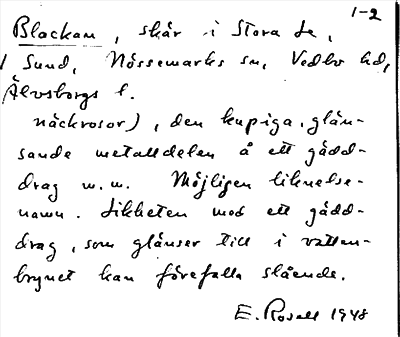 1-2
Blackan, skär i Stora Le,
Sund, Nössemarks sn, Vedbo hd,
Älvsborgs l.
näckrosor), den kupiga, glän-
sande metalldelen å ett gädd-
drag m.m. Möjligen liknelse-
namn. Likheten med ett gädd-
drag, som glänser till i vatten-
brynet kan förefalla slående.
E. Rosell 1948